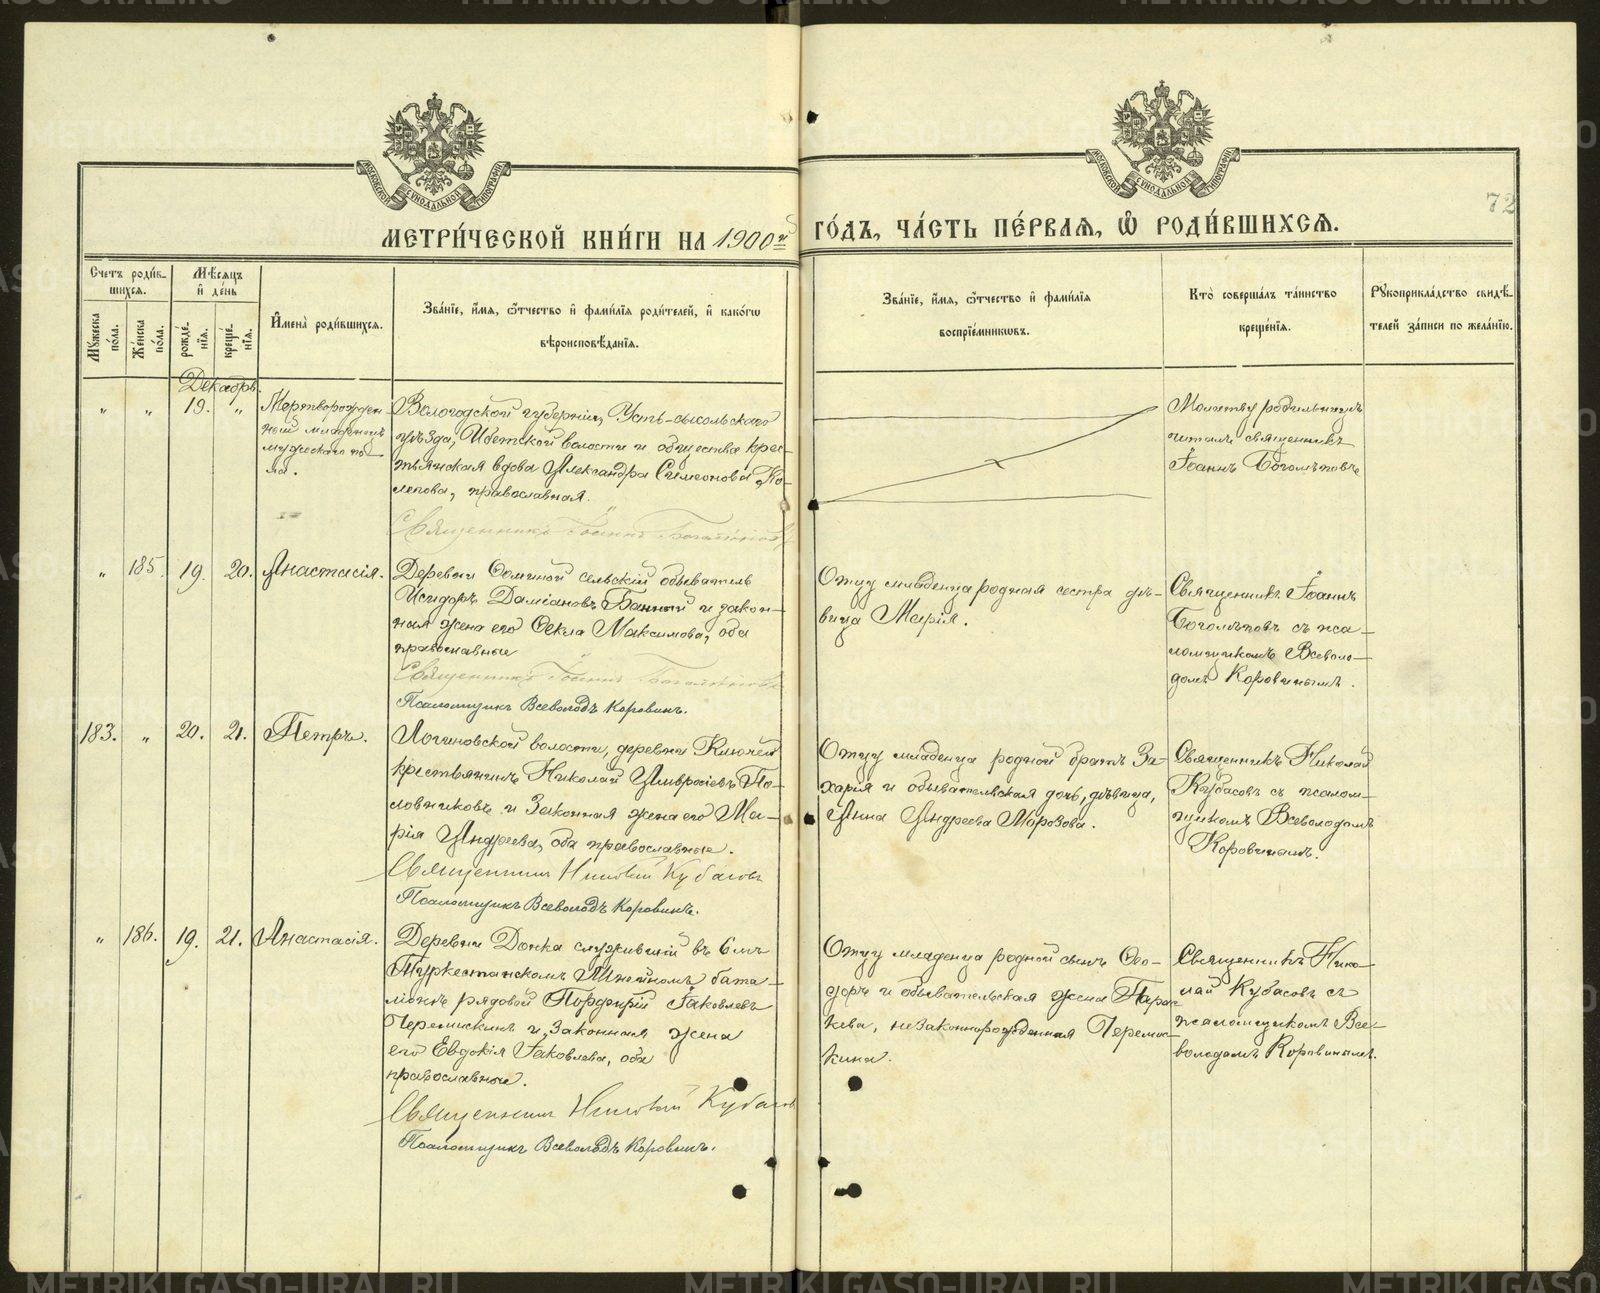 МЕТРИ́ЧЕСКОЙ КНИ́ГИ НА 1900й
ГО́ДЪ, ЧА́СТЬ ПЕ́РВАѦ, Ѿ РОДИ́ВШИХСѦ.
72
Счетъ роди́в-
шихсѧ.
Мѣсѧцъ
и де́нь
Имена̀ роди́вшихсѧ.
Зва́нїе, и́мѧ, ѻ́тчество и фами́лїѧ роди́телей, и како́гѡ
вѣроисповѣ́данїѧ.
Зва́нїе, и́мѧ, ѻ́тчество и фами́лїѧ
воспрїе́мникѡвъ.
Кто̀ соверша́лъ та́инство
креще́нїѧ.
Рꙋкоприкла́дство свидѣ́-
телей за́писи по жела́нїю.
Мꙋжеска
по́ла.
Же́нска
по́ла.
рожде́-
нїѧ.
креще́-
нїѧ.
Декабрь.
" " 19. "
Мертворожден-
ный младенецъ
мужескаго по-
ла.
Вологодской губерніи, Усть-сысольскаго
уѣзда, Ибетской волости и общества крес-
тьянская вдова Александра Симеонова Ко-
лепова, православная.
Священникъ Іоаннъ Боголѣповъ
Молитву родильницѣ
читалъ священникъ
Іоаннъ Боголѣповъ
" 185. 19. 20. Анастасія.
Деревни Ѳоминой сельскій обыватель
Исидоръ Даміановъ Банный и закон-
ная жена его Ѳекла Максимова, оба
православные
Священникъ Іоаннъ Боголѣповъ
Псаломщикъ Всеволодъ Коровинъ.
Отцу младенца родная сестра дѣ-
вица Марія.
Священникъ Іоаннъ
Боголѣповъ съ пса-
ломщикомъ Всеволо-
домъ Коровинымъ.
183. " 20. 21. Петръ.
Логиновской волости, деревни Ключей
крестьянинъ Николай Амвросіевъ По-
ловниковъ и законная жена его Ма-
рія Андреева, оба православные.
Священникъ Николай Кубасовъ
Псаломщикъ Всеволодъ Коровинъ.
Отцу младенца родной братъ За-
харія и обывательская дочь, дѣвица,
Анна Андреева Морозова.
Священникъ Николай
Кубасовъ съ псалом-
щикомъ Всеволодомъ
Коровинымъ.
" 186. 19. 21. Анастасія.
Деревни Донка служившій въ 6мъ
Туркестанскомъ Линейномъ бата-
ліонѣ рядовой Порфирій Іаковлевъ
Перемыкинъ и законная жена
его Евдокія Іаковлева, оба
православные.
Священникъ Николай Кубасовъ
Псаломщикъ Всеволодъ Коровинъ.
Отцу младенца родной сынъ Ѳео-
доръ и обывательская жена Парас
кева, незаконнорожденная Перемы-
кина.
Священникъ Нико-
лай Кубасовъ съ
псаломщикомъ Все-
володомъ Коровинымъ.
METRIKI.GASO-URAL.RU